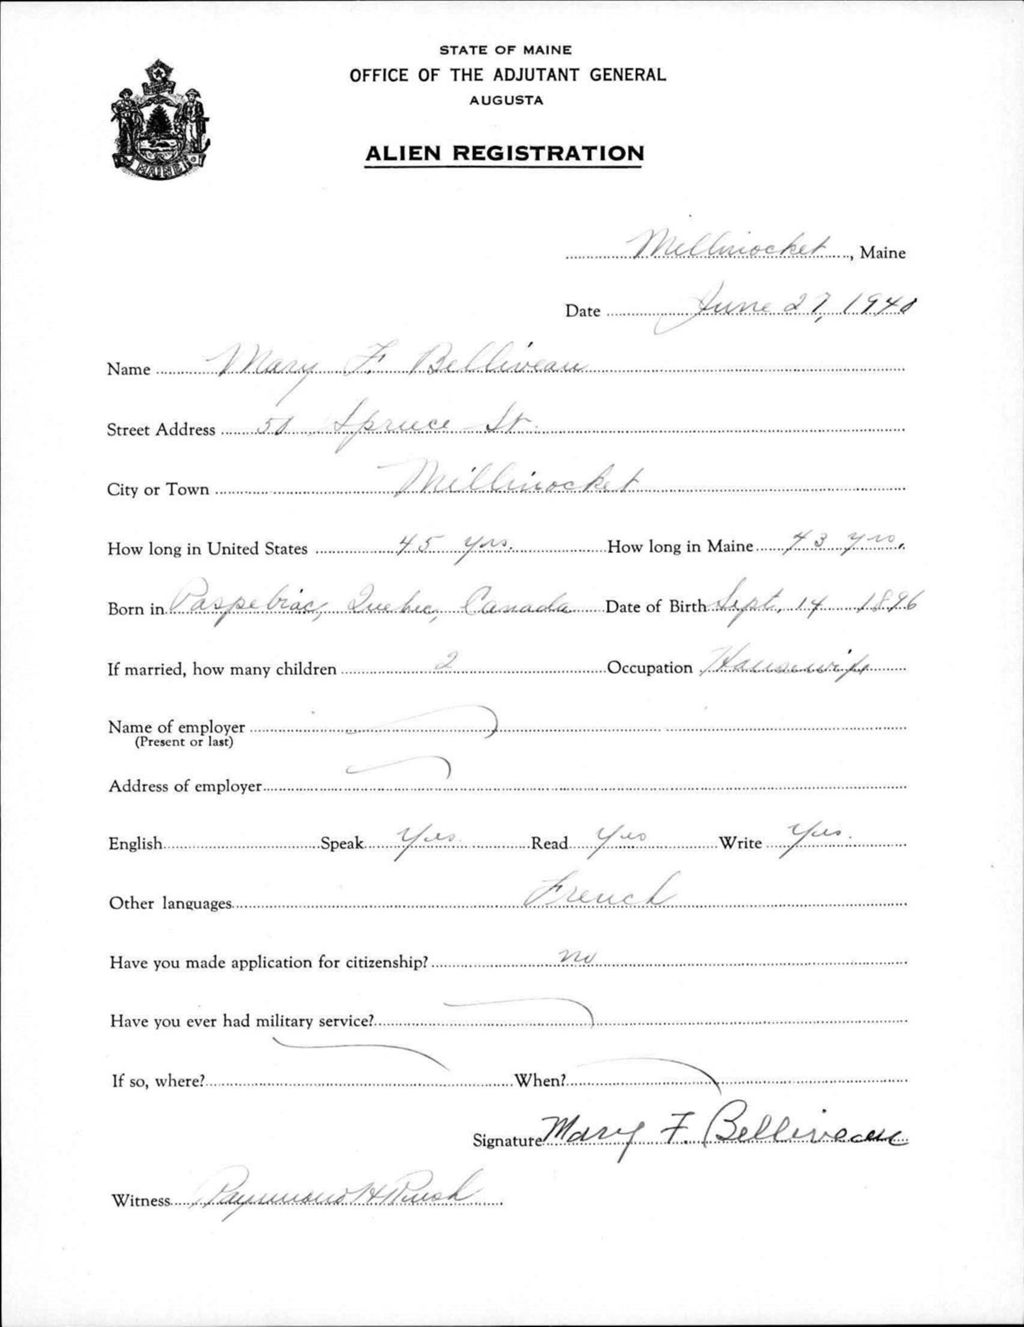 STATE OF MAINE
OFFICE OF THE ADJUTANT GENERAL
AUGUSTA
ALIEN REGISTRATION
MAINE
Millinocket, Maine
Date June 27, 1940
Name Mary F. Belliveau
Street Address 50 Spruce St.
City or Town Millinocket
How long in United States 45 yrs. How long in Maine 43 yrs.
Born in Paspebiac, Quebec, Canada Date of Birth Sept. 14 1896
If married, how many children 2 Occupation Housewife
Name of employer
(Present or last)
Address of employer
English Speak Yes Read Yes Write Yes.
Other languages French
Have you made application for citizenship? no
Have you ever had military service?
If so, where? When?
Signature Mary F. Belliveau
Witness Raymond H Rush